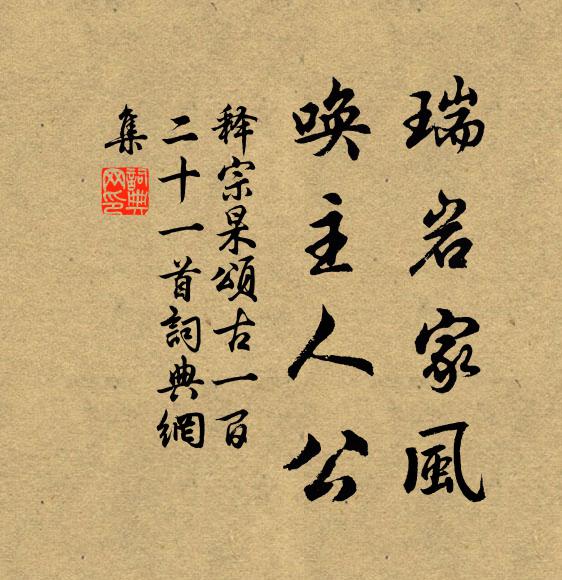 瑞岩家風
喚主人公
释宗杲頌古一百
二十一首詞典網
集
詞典
网印